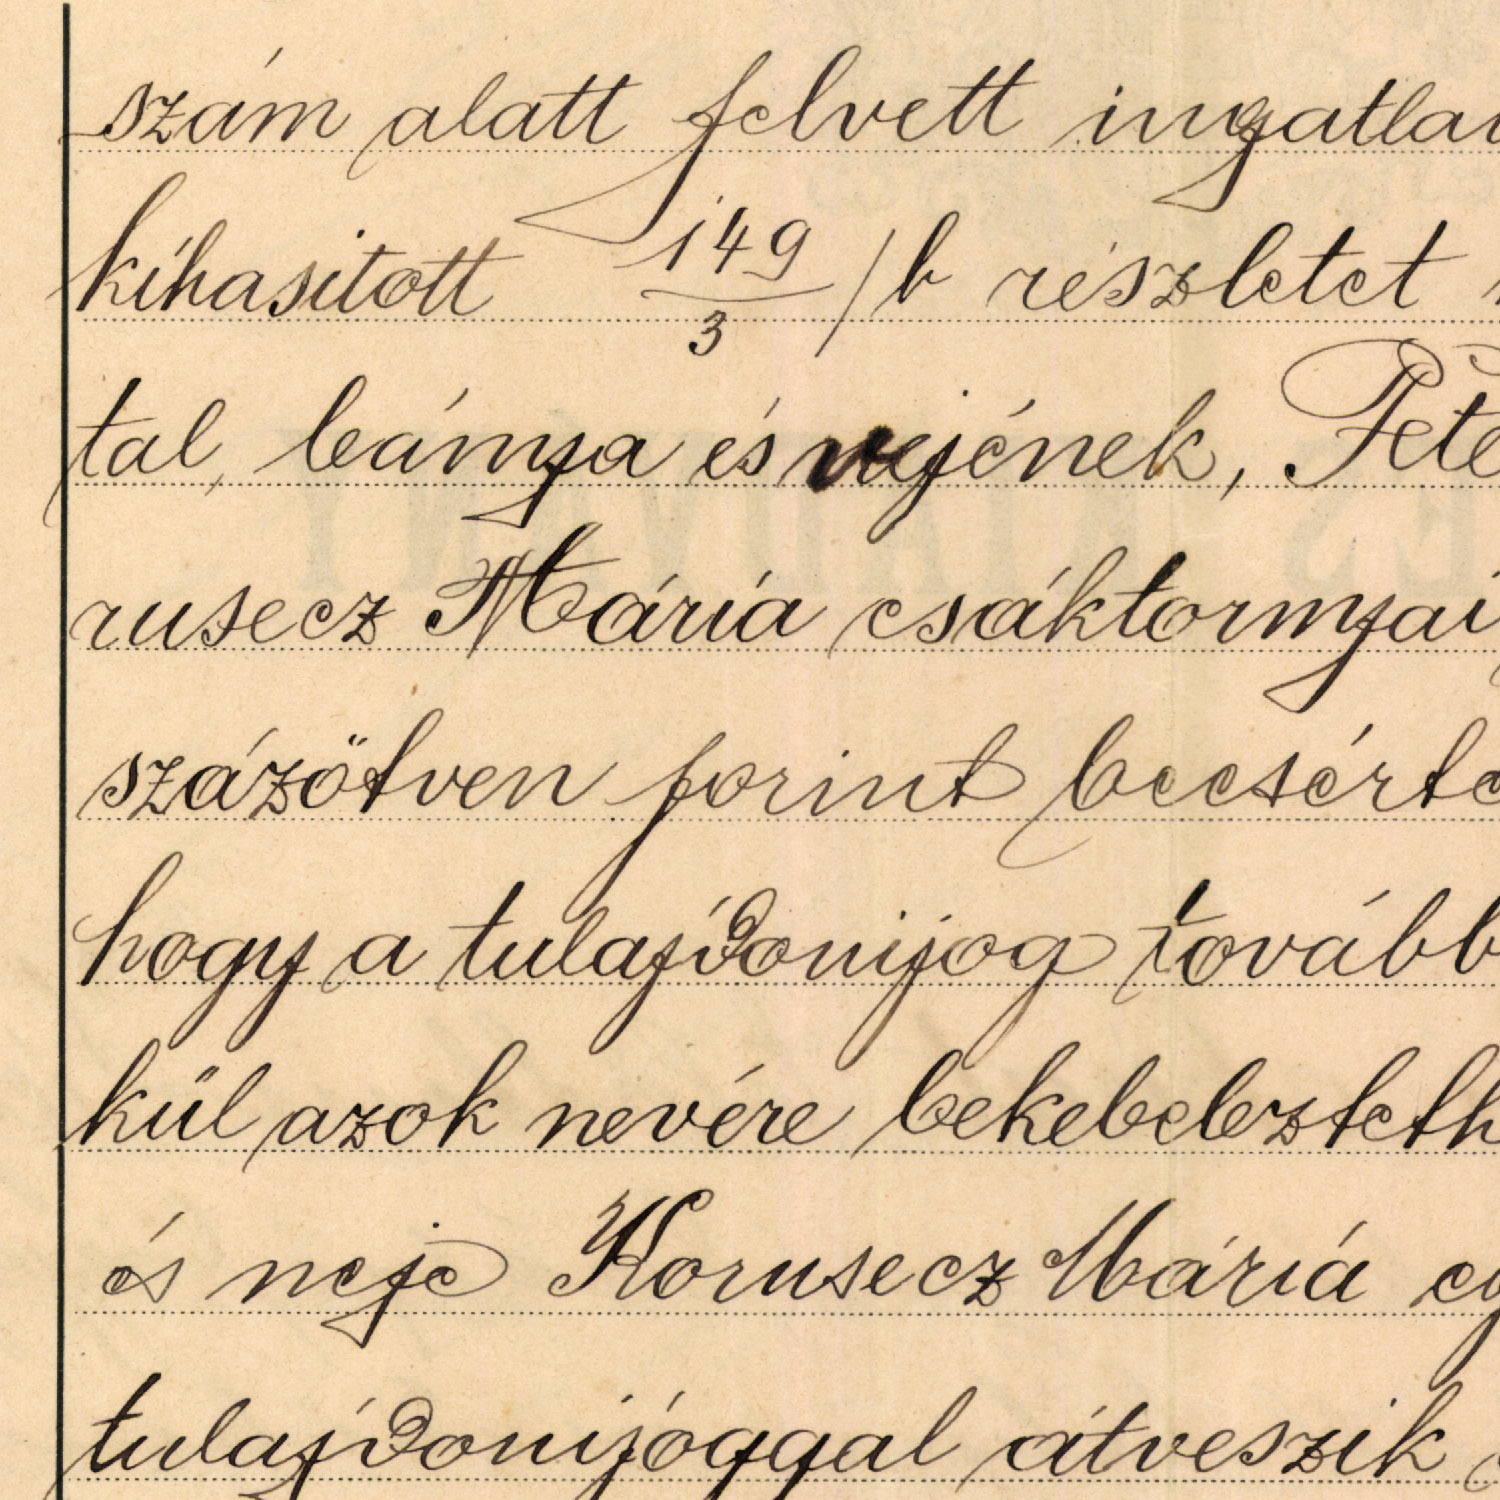 szám alatt felvett ingatlan
kihasitott 149/3 /b részletet
tal, leánya és vejének, Pete
rusecz Mária csáktornyai
százötven forint becsérté
hogy a tulajdonijog tovább
kül azok nevére bekebelezteth
és neje Horusecz Máriá eg
tulajdonijóggal átveszik